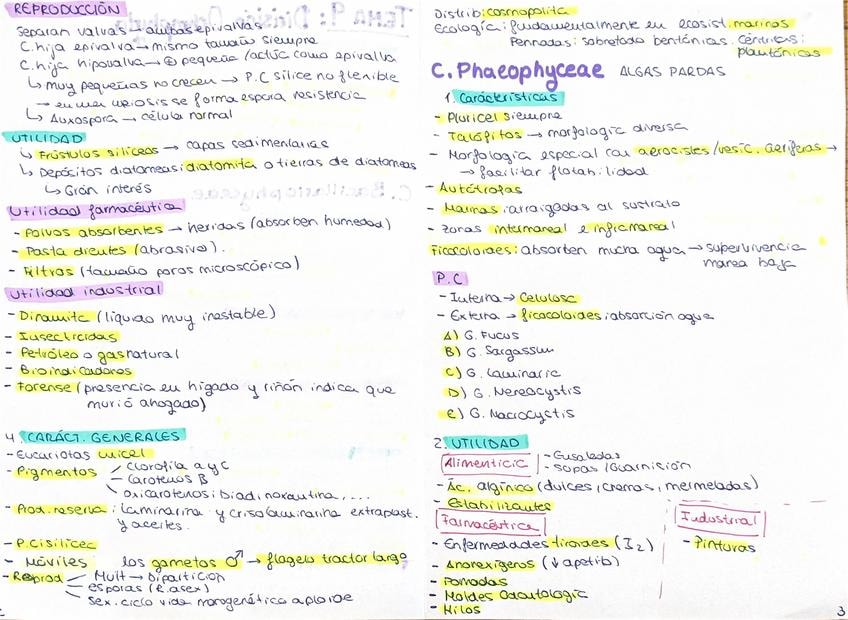 REPRODUCCIÓN
Separan valvas → ambas epivalvas
C. hija epivalva → mismo tamaño siempre
C. hija hipovalva → + pequeña /actúa como epivalva
↳ muy pequeñas no crecen → P.C sílice no flexible
→ en una meiosis se forma espora resistencia
↳ Auxospora → célula normal
UTILIDAD
↳ Frústulos silíceos → capas sedimentarias
↳ Depósitos diatomeas: diatomita o tierras de diatomeas
↳ Gran interés
Utilidad farmacéutica
- Polvos absorbentes → heridas (absorben humedad)
- Pasta dientes (abrasiva).
- Filtros (tamaño poros microscópico)
Utilidad industrial
- Dinamita (líquido muy inestable)
- Insecticidas
- Petróleo o gas natural
- Bioindicadores
- Forense (presencia en hígado y riñón indica que
murió ahogado)
4. CARÁCT. GENERALES
- Eucariotas unicel
- Pigmentos
Clorofila a y C
Carotenos B
Oxicarotenos: biadinoxantina, ...
- Prod. reserva: laminarina y crisolaminarina extraplast.
y aceites.
- P.C: sílícea
- Móviles los gametos ♂ → flagelo tractor largo
- Reprod
Mult → Bipartición
esporas (R. asex)
sex. ciclo vida monogenético diploide
Distrib: cosmopolita
Ecología: fundamentalmente en ecosist. marinos
Pennadas: sobretodo bentónicas. Céntricas:
planctónicas
C. Phaeophyceae ALGAS PARDAS
1. Carácterísticas
- Pluricel siempre
- Talófitos → morfología diversa
- Morfología especial con aerocistes/vesíc. aeríferas →
→ facilitar flotabilidad
- Autótrofas
- Marinas: arraigadas al sustrato
- Zonas intermareal e inframareal
Ficocoloides: absorben mucha agua → supervivencia
marea baja
P.C
- Interna → Celulosa
- Externa → ficocoloides: absorción agua
A) G. Fucus
B) G. Sargassum
C) G. Laminaria
D) G. Nereocystis
E) G. Macrocystis
2. UTILIDAD
Alimenticia
- Ensaladas
- sopas /Guarnición
- Ác. algínico (dulces, cremas, mermeladas)
- Estabilizantes
Farmacéutica
- Enfermedades tiroides (I2)
- Anorexígenos (↓ apetito)
- Pomadas
- Moldes Odontología
- Hilos
Industrial
- Pinturas
3